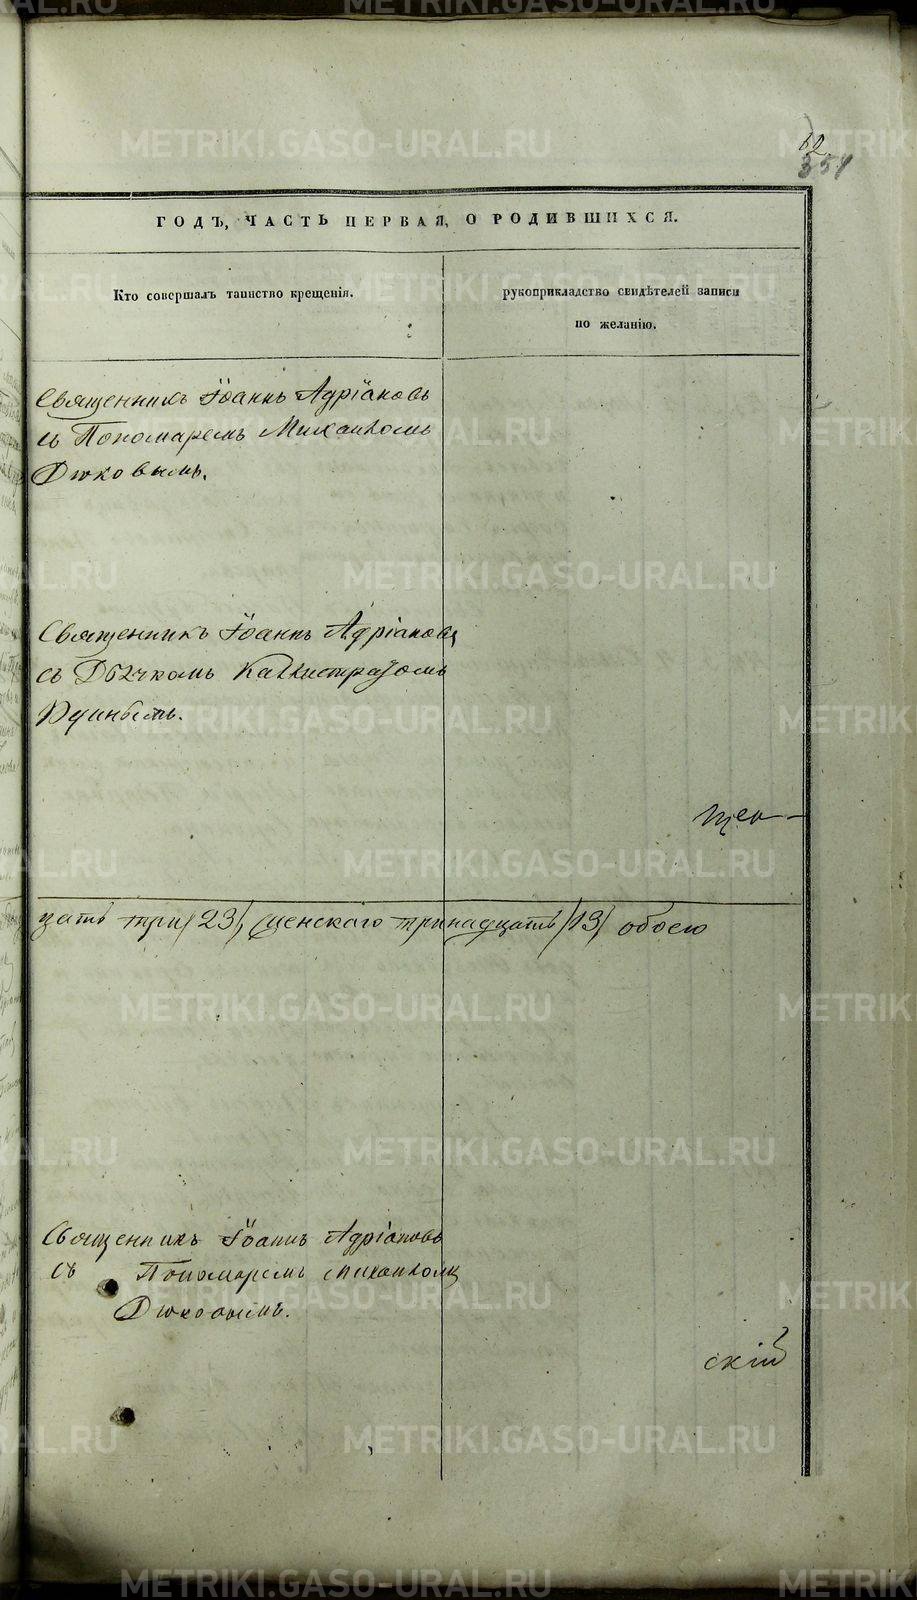 62
354
ГОДЪ, ЧАСТЬ ПЕРВАЯ, О РОДИВШИХСЯ.
Кто совершалъ таинство крещенія.
рукоприкладство свидѣтелей записи
по желанію.
Священникъ Іоаннъ Адріановъ
съ Пономаремъ Михаиломъ
Дюковымъ.
Священникъ Іоаннъ Адріановъ
съ Дьячкомъ Каллистратомъ
Удинымъ.
щен-
цать три /23/, женскаго тринадцать /13/ обоего
Священникъ Іоаннъ Адріановъ
съ Пономаремъ Михаиломъ
Дюковымъ.
скій
METRIKI.GASO-URAL.RU